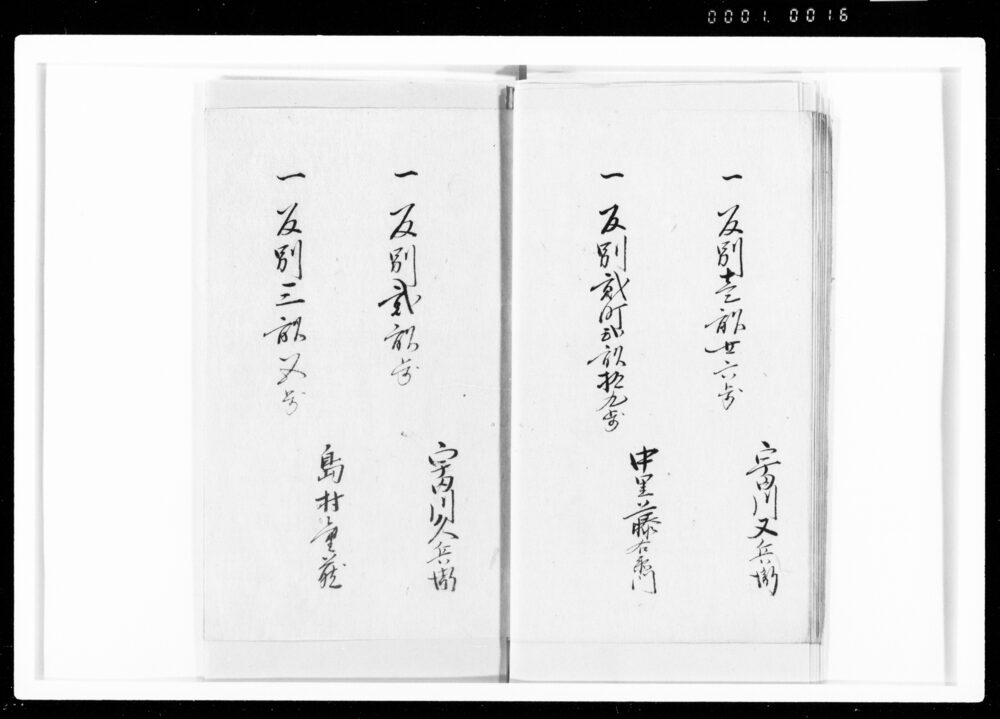 0001. 0016
一反別壱畝廿六歩
宇田川又兵衛
一反別弐町弐畝拾九歩
中里藤右衛門
一反別弐畝歩
宇田川久兵衛
一反別三畝又歩
島村重蔵